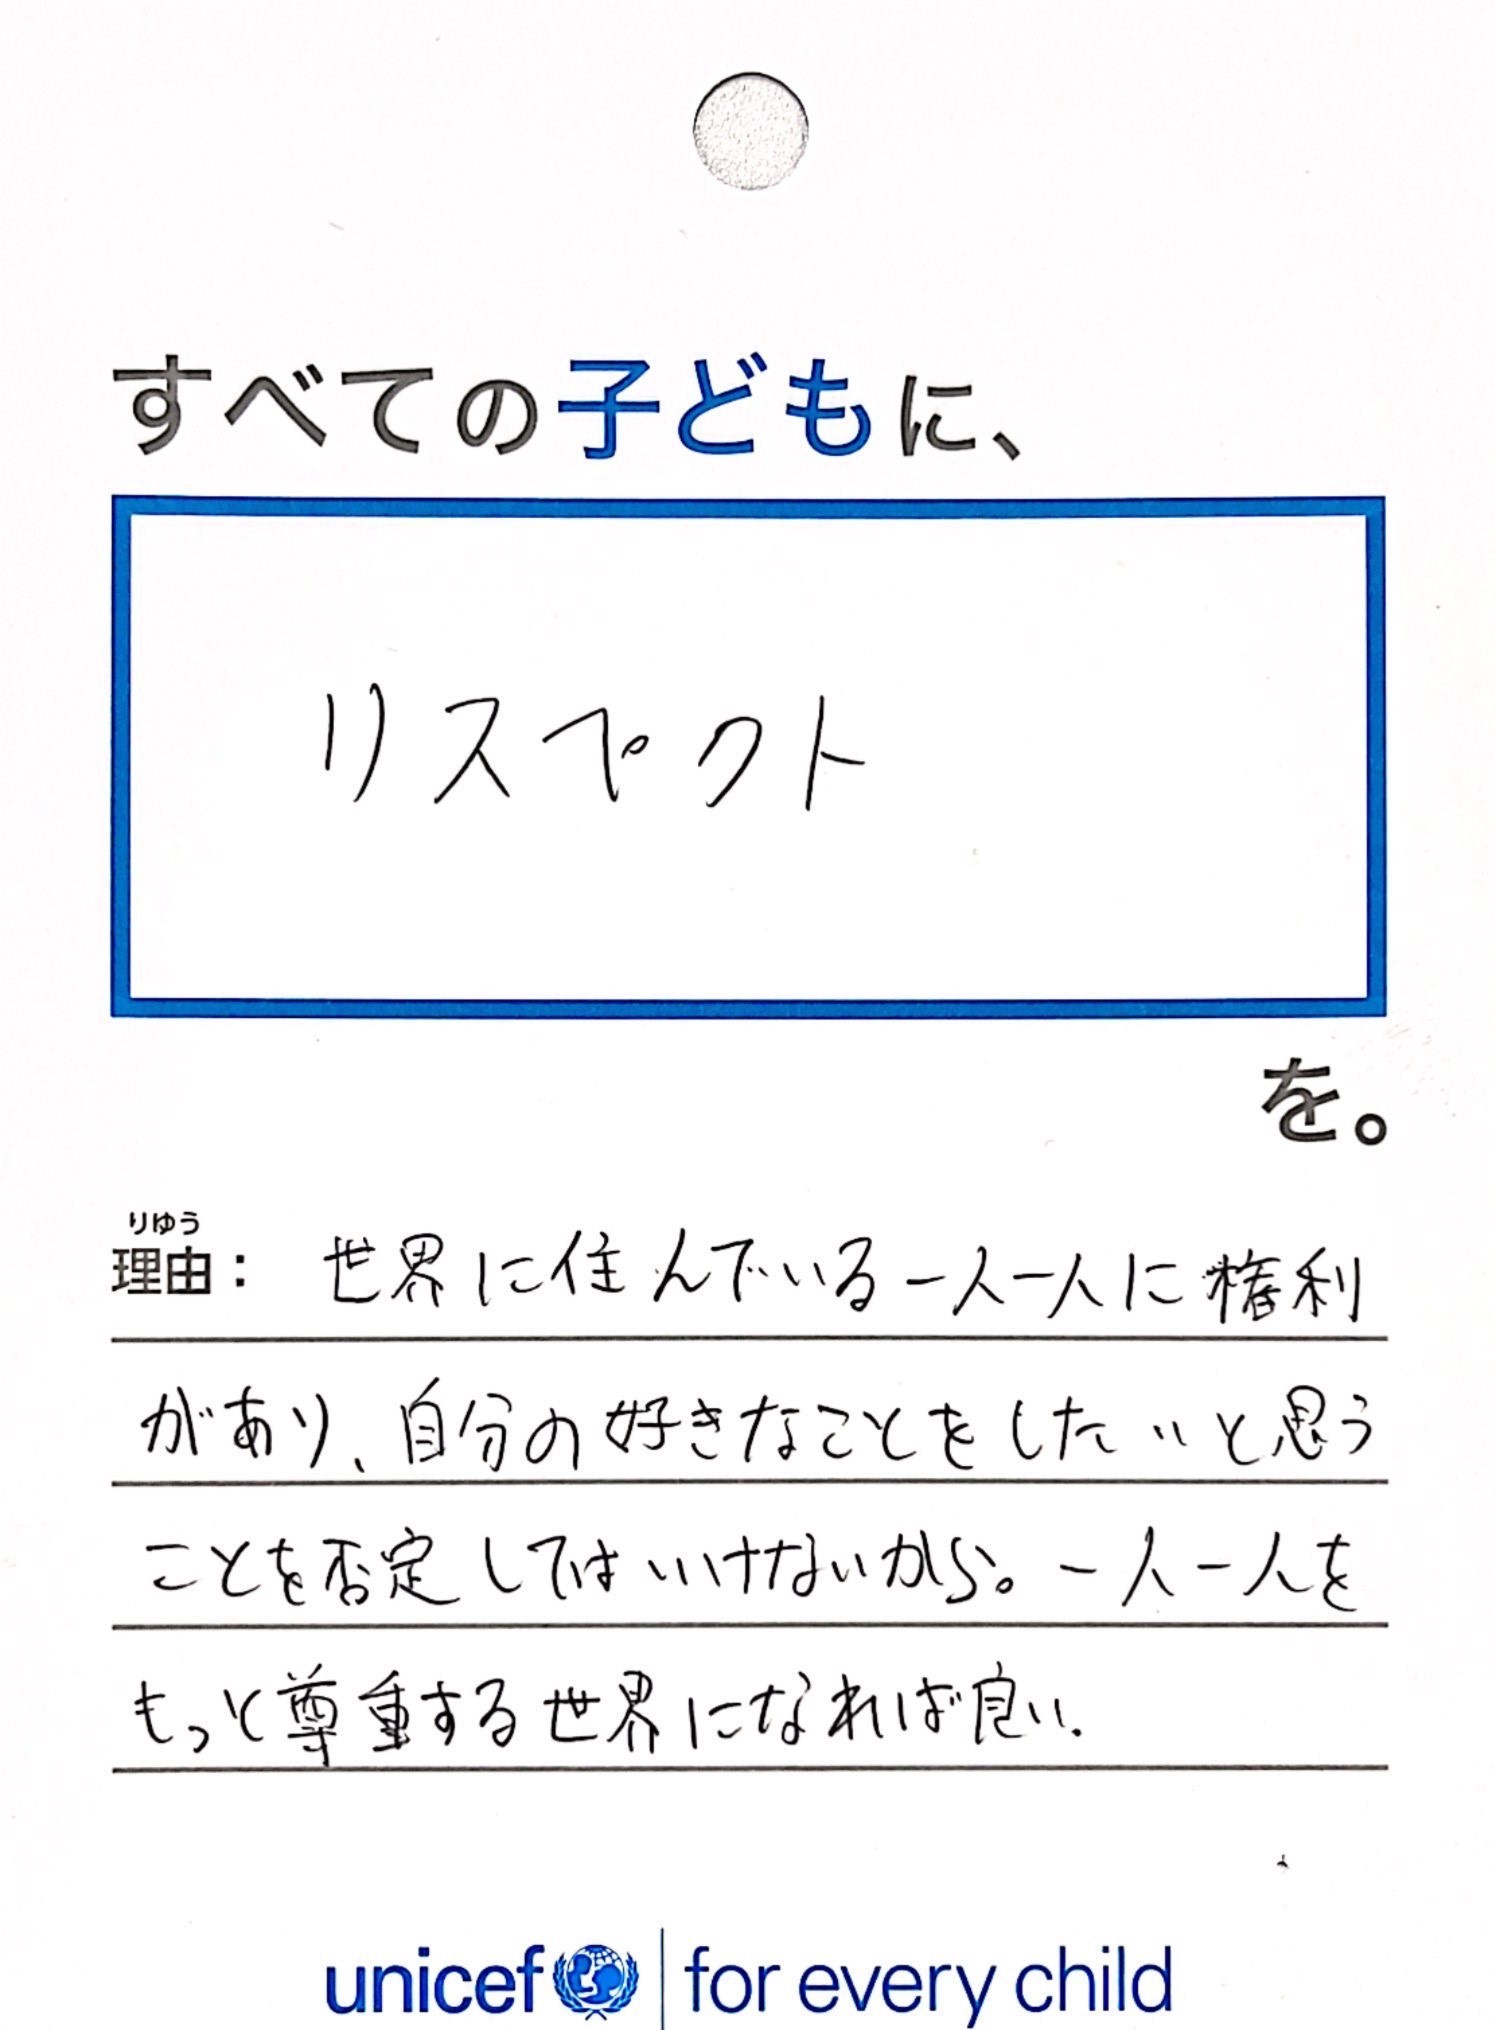 すべての子どもに、
リスペクト
を。
りゆう
理由： 世界に住んでいる一人一人に権利
があり、自分の好きなことをしたいと思う
ことを否定してはいけないから。一人一人を
もっと尊重する世界になれば良い.
unicef for every child